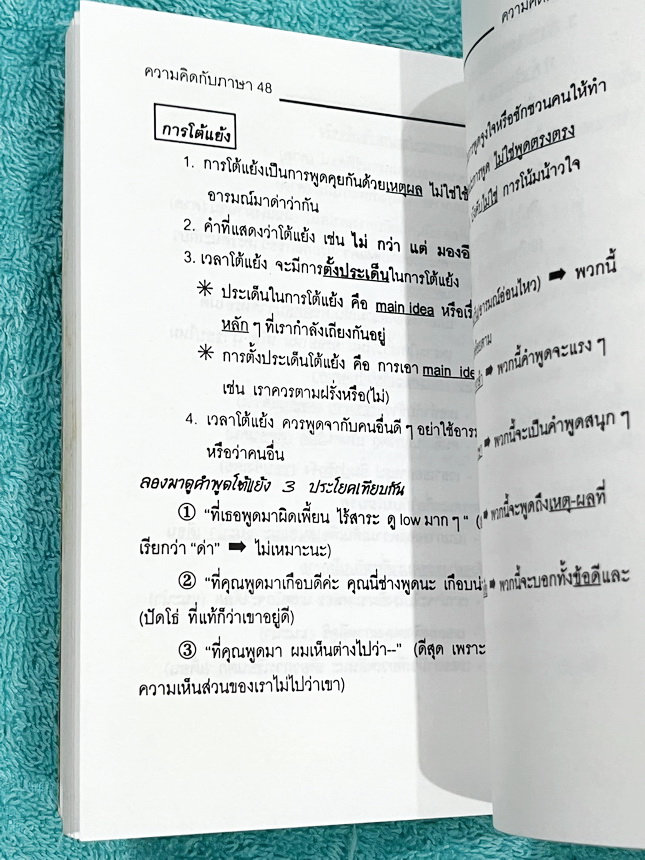 ความคิดกับภาษา 48
การโต้แย้ง
1. การโต้แย้งเป็นการพูดคุยกันด้วยเหตุผล ไม่ใช่ใช้
อารมณ์มาด่าว่ากัน
2. คำที่แสดงว่าโต้แย้ง เช่น ไม่ กว่า แต่ มองอี
3. เวลาโต้แย้ง จะมีการตั้งประเด็นในการโต้แย้ง
✳ ประเด็นในการโต้แย้ง คือ main idea หรือเรื่
หลัก ๆ ที่เรากำลังเถียงกันอยู่
✳ การตั้งประเด็นโต้แย้ง คือ การเอา main ide
เช่น เราควรตามฝรั่งหรือ(ไม่)
4. เวลาโต้แย้ง ควรพูดจากับคนอื่นดี ๆ อย่าใช้อาร
หรือว่าคนอื่น
ลองมาดูคำพูดโต้แย้ง 3 ประโยคเทียบกัน
① "ที่เธอพูดมาผิดเพี้ยน ไร้สาระ ดู low มาก ๆ"
เรียกว่า "ด่า" ➡ ไม่เหมาะนะ)
② "ที่คุณพูดมาเกือบดีค่ะ คุณนี่ช่างพูดนะ เกือบน่
(ปัดโธ่ ที่แท้ก็ว่าเขาอยู่ดี)
③ "ที่คุณพูดมา ผมเห็นต่างไปว่า--" (ดีสุด เพราะ
ความเห็นส่วนของเราไม่ไปว่าเขา)
จูงใจหรือชักชวนคนให้ทำ
การพูด ไม่ใช่พูดตรงตรง
การโน้มน้าวใจ
อารมณ์อ่อนไหว) ➡ พวกนี้
➡ พวกนี้คำพูดจะแรง ๆ
➡ พวกนี้จะเป็นคำพูดสนุก ๆ
➡ พวกนี้จะพูดถึงเหตุ-ผลที่
➡ พวกนี้จะบอกทั้งข้อดีและ